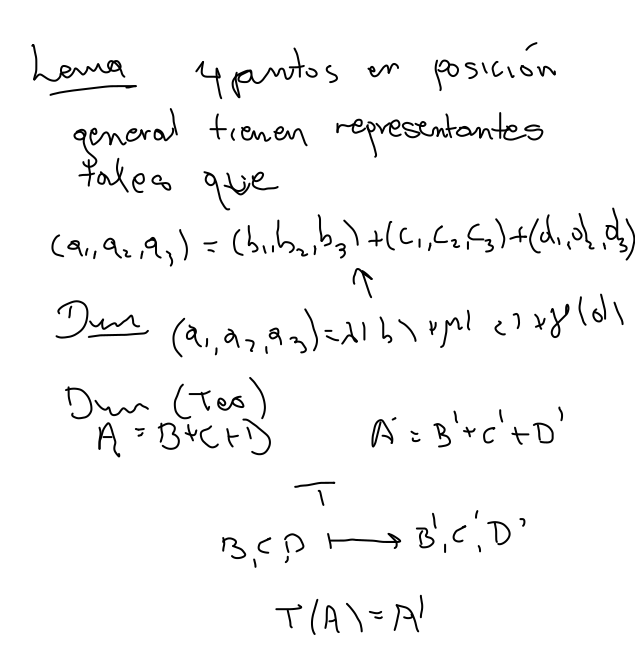 Lema 4 puntos en posición
general tienen representantes
tales que
(a₁,a₂,a₃) = (b₁,b₂,b₃)+(c₁,c₂,c₃)+(d₁,d₂,d₃)
↑
Dem (a₁,a₂,a₃)=λ(b)+μ(c)+γ(d)
Dem (Teo)
A = B+C+D A = B'+C'+D'
T
B,C,D ↦ B',C',D'
T(A)=A'